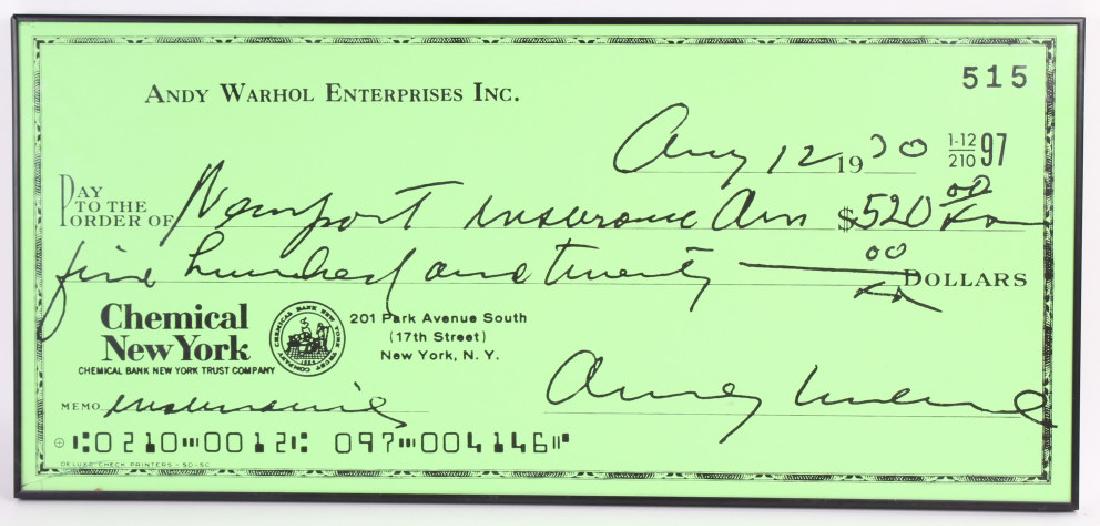 515
ANDY WARHOL ENTERPRISES INC.
Aug 12 1970
1-12
210 97
PAY TO THE ORDER OF Newport Insurance $520 00/xx
five hundred and twenty 00/xx DOLLARS
Chemical New York
CHEMICAL BANK NEW YORK TRUST COMPANY
201 Park Avenue South
(17th Street)
New York, N. Y.
Andy Warhol
MEMO insurance
⑆0210⑉0012⑆ 097⑉004146⑈
DELUXE CHECK PRINTERS - SD-SC